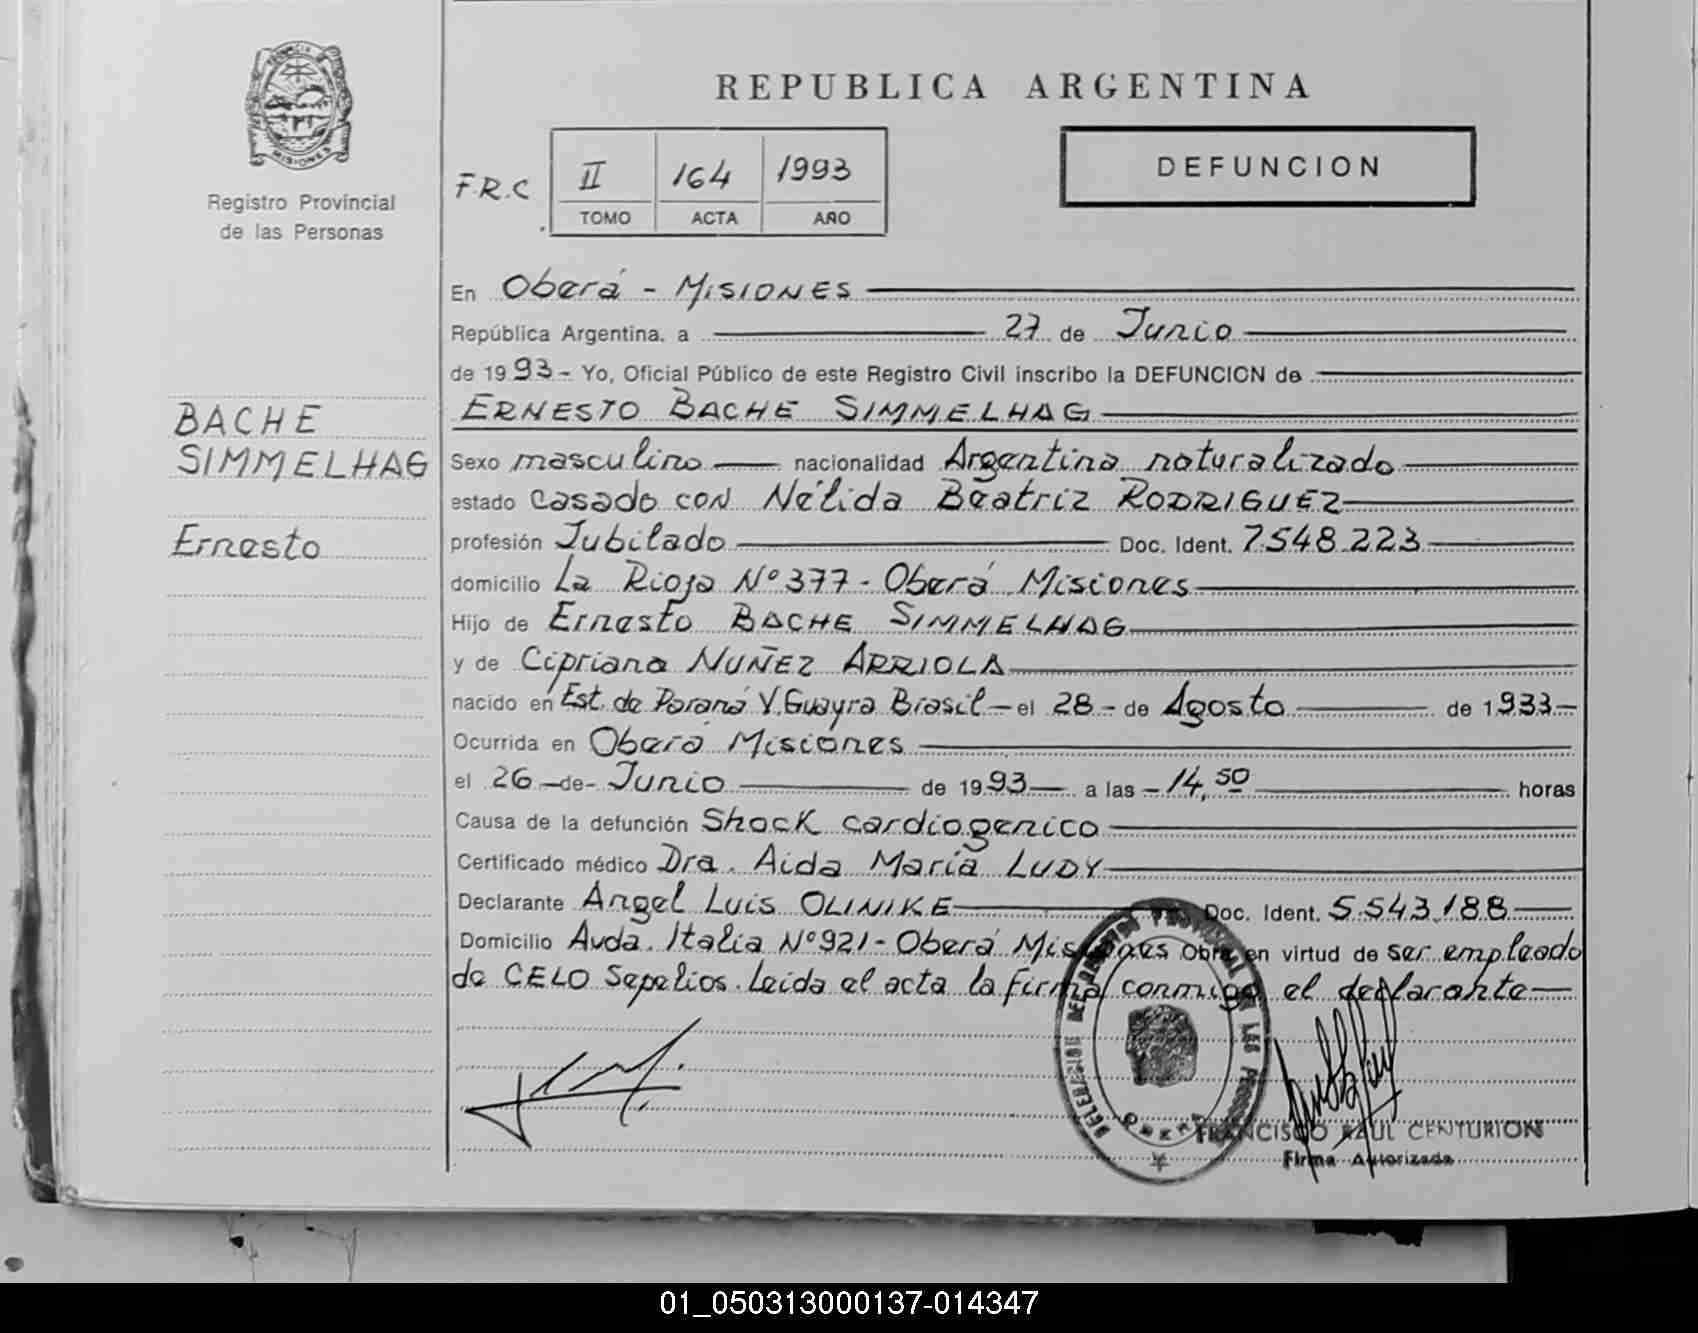 PROVINCIA DE
MISIONES
Registro Provincial
de las Personas
REPUBLICA ARGENTINA
F.R.C
II 164 1993
TOMO ACTA AÑO
DEFUNCION
BACHE
SIMMELHAG
Ernesto
En Oberá - MISIONES
República Argentina, a 27 de Junio
de 1993- Yo, Oficial Público de este Registro Civil inscribo la DEFUNCION de
ERNESTO BACHE SIMMELHAG
Sexo masculino nacionalidad Argentina naturalizado
estado casado con Nélida Beatriz RODRIGUEZ
profesión Jubilado Doc. Ident. 7.548.223
domicilio La Rioja Nº 377- Oberá Misiones
Hijo de Ernesto BACHE SIMMELHAG
y de Cipriana NUÑEZ ARRIOLA
nacido en Est. de Paraná V. Guayra Brasil - el 28 - de Agosto de 1933-
Ocurrida en Oberá Misiones
el 26 -de- Junio de 1993 a las -14,50 horas
Causa de la defunción Shock cardiogenico
Certificado médico Dra. Aida María LUDY
Declarante Angel Luis OLINIKE Doc. Ident. 5.543.188
Domicilio Avda. Italia Nº 921- Oberá Misiones Obra en virtud de ser empleado
de CELO Sepelios. Leida el acta la firma conmigo el declarante
DELEGACION DEL REGISTRO PROVINCIAL DE LAS PERSONAS
OBERA
FRANCISCO RAUL CENTURION
Firma Autorizada
01_050313000137-014347